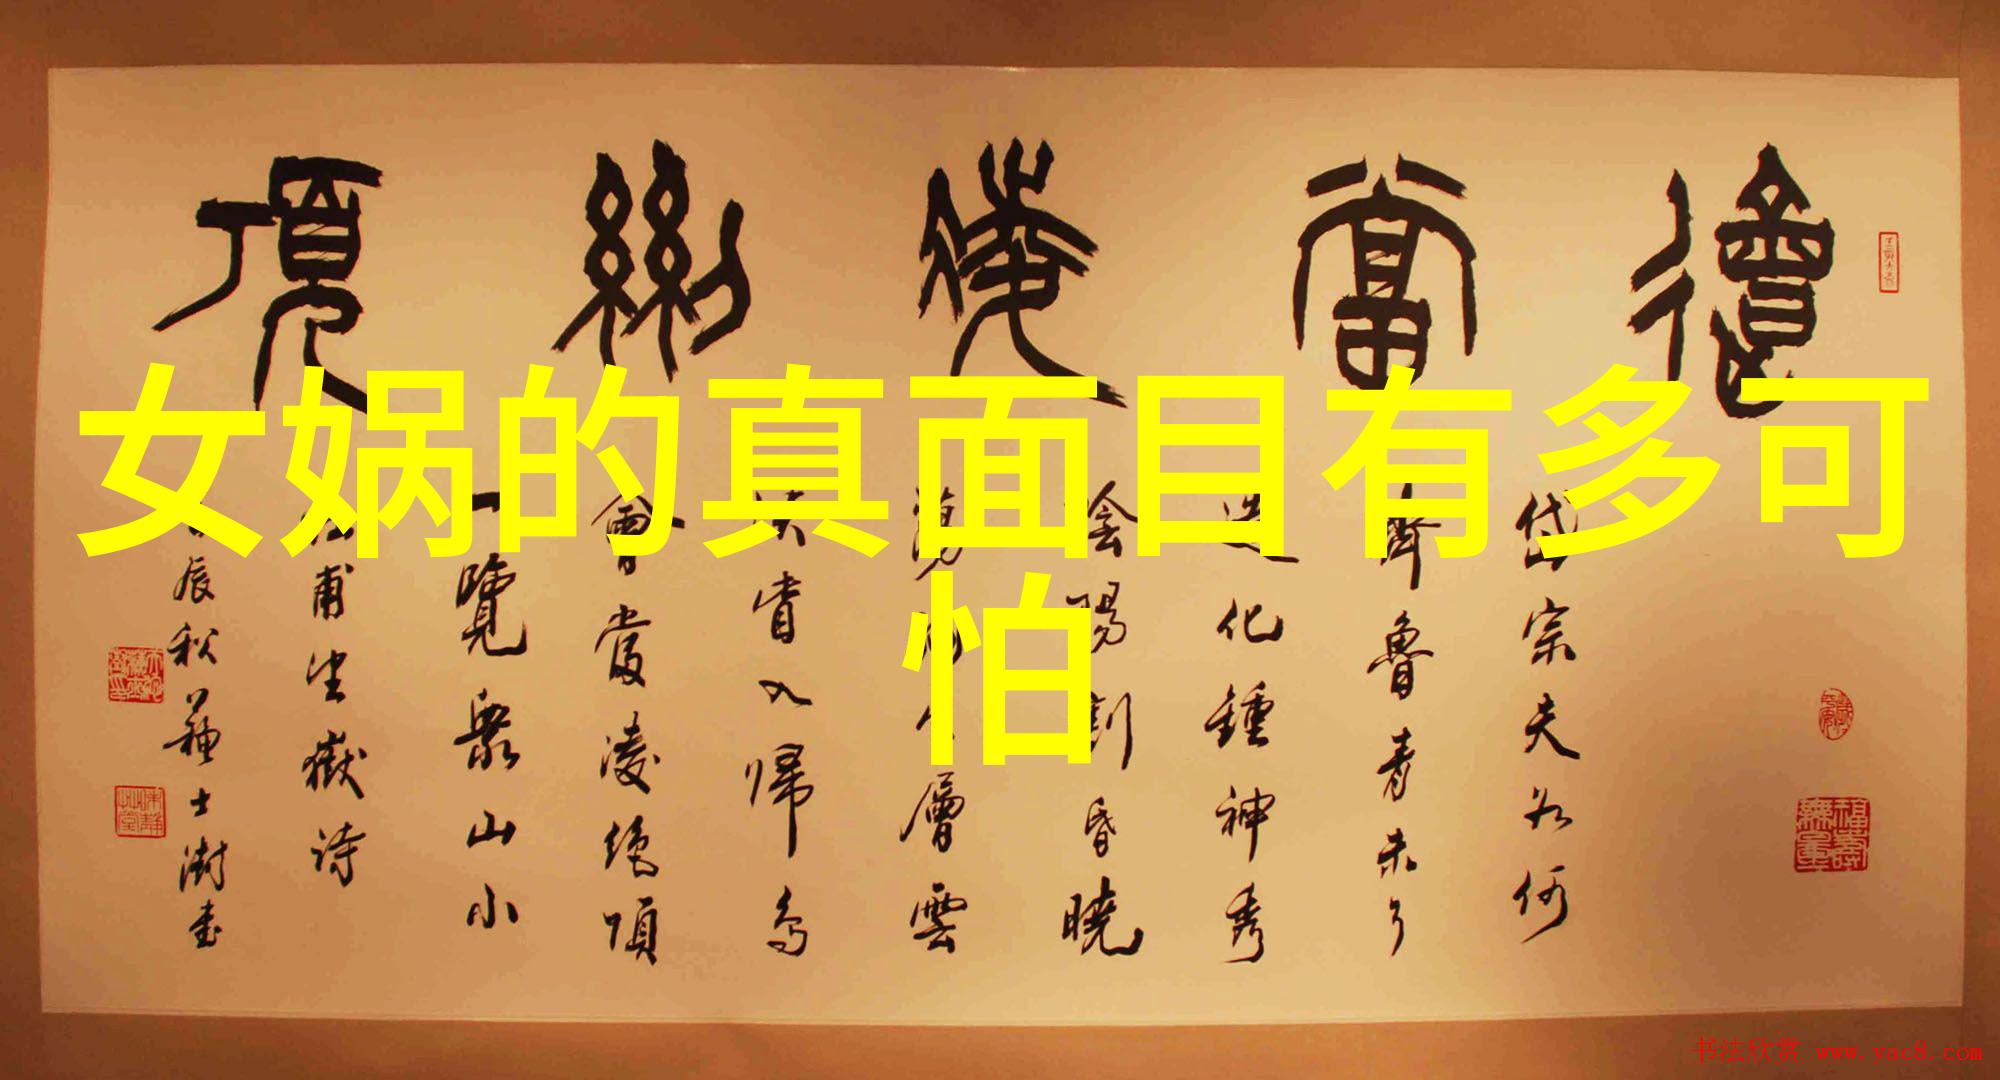 女娲的真面目有多可
怕
會當凌絕頂
岱宗夫如何
齊魯青未了
造化鍾神秀
陰陽割昏曉
蕩層雲
眥入歸鳥
會當凌絕頂
一覽衆山小
杜甫望嶽詩
辰秋蘇士澍書
书法欣赏 www.yac8.com